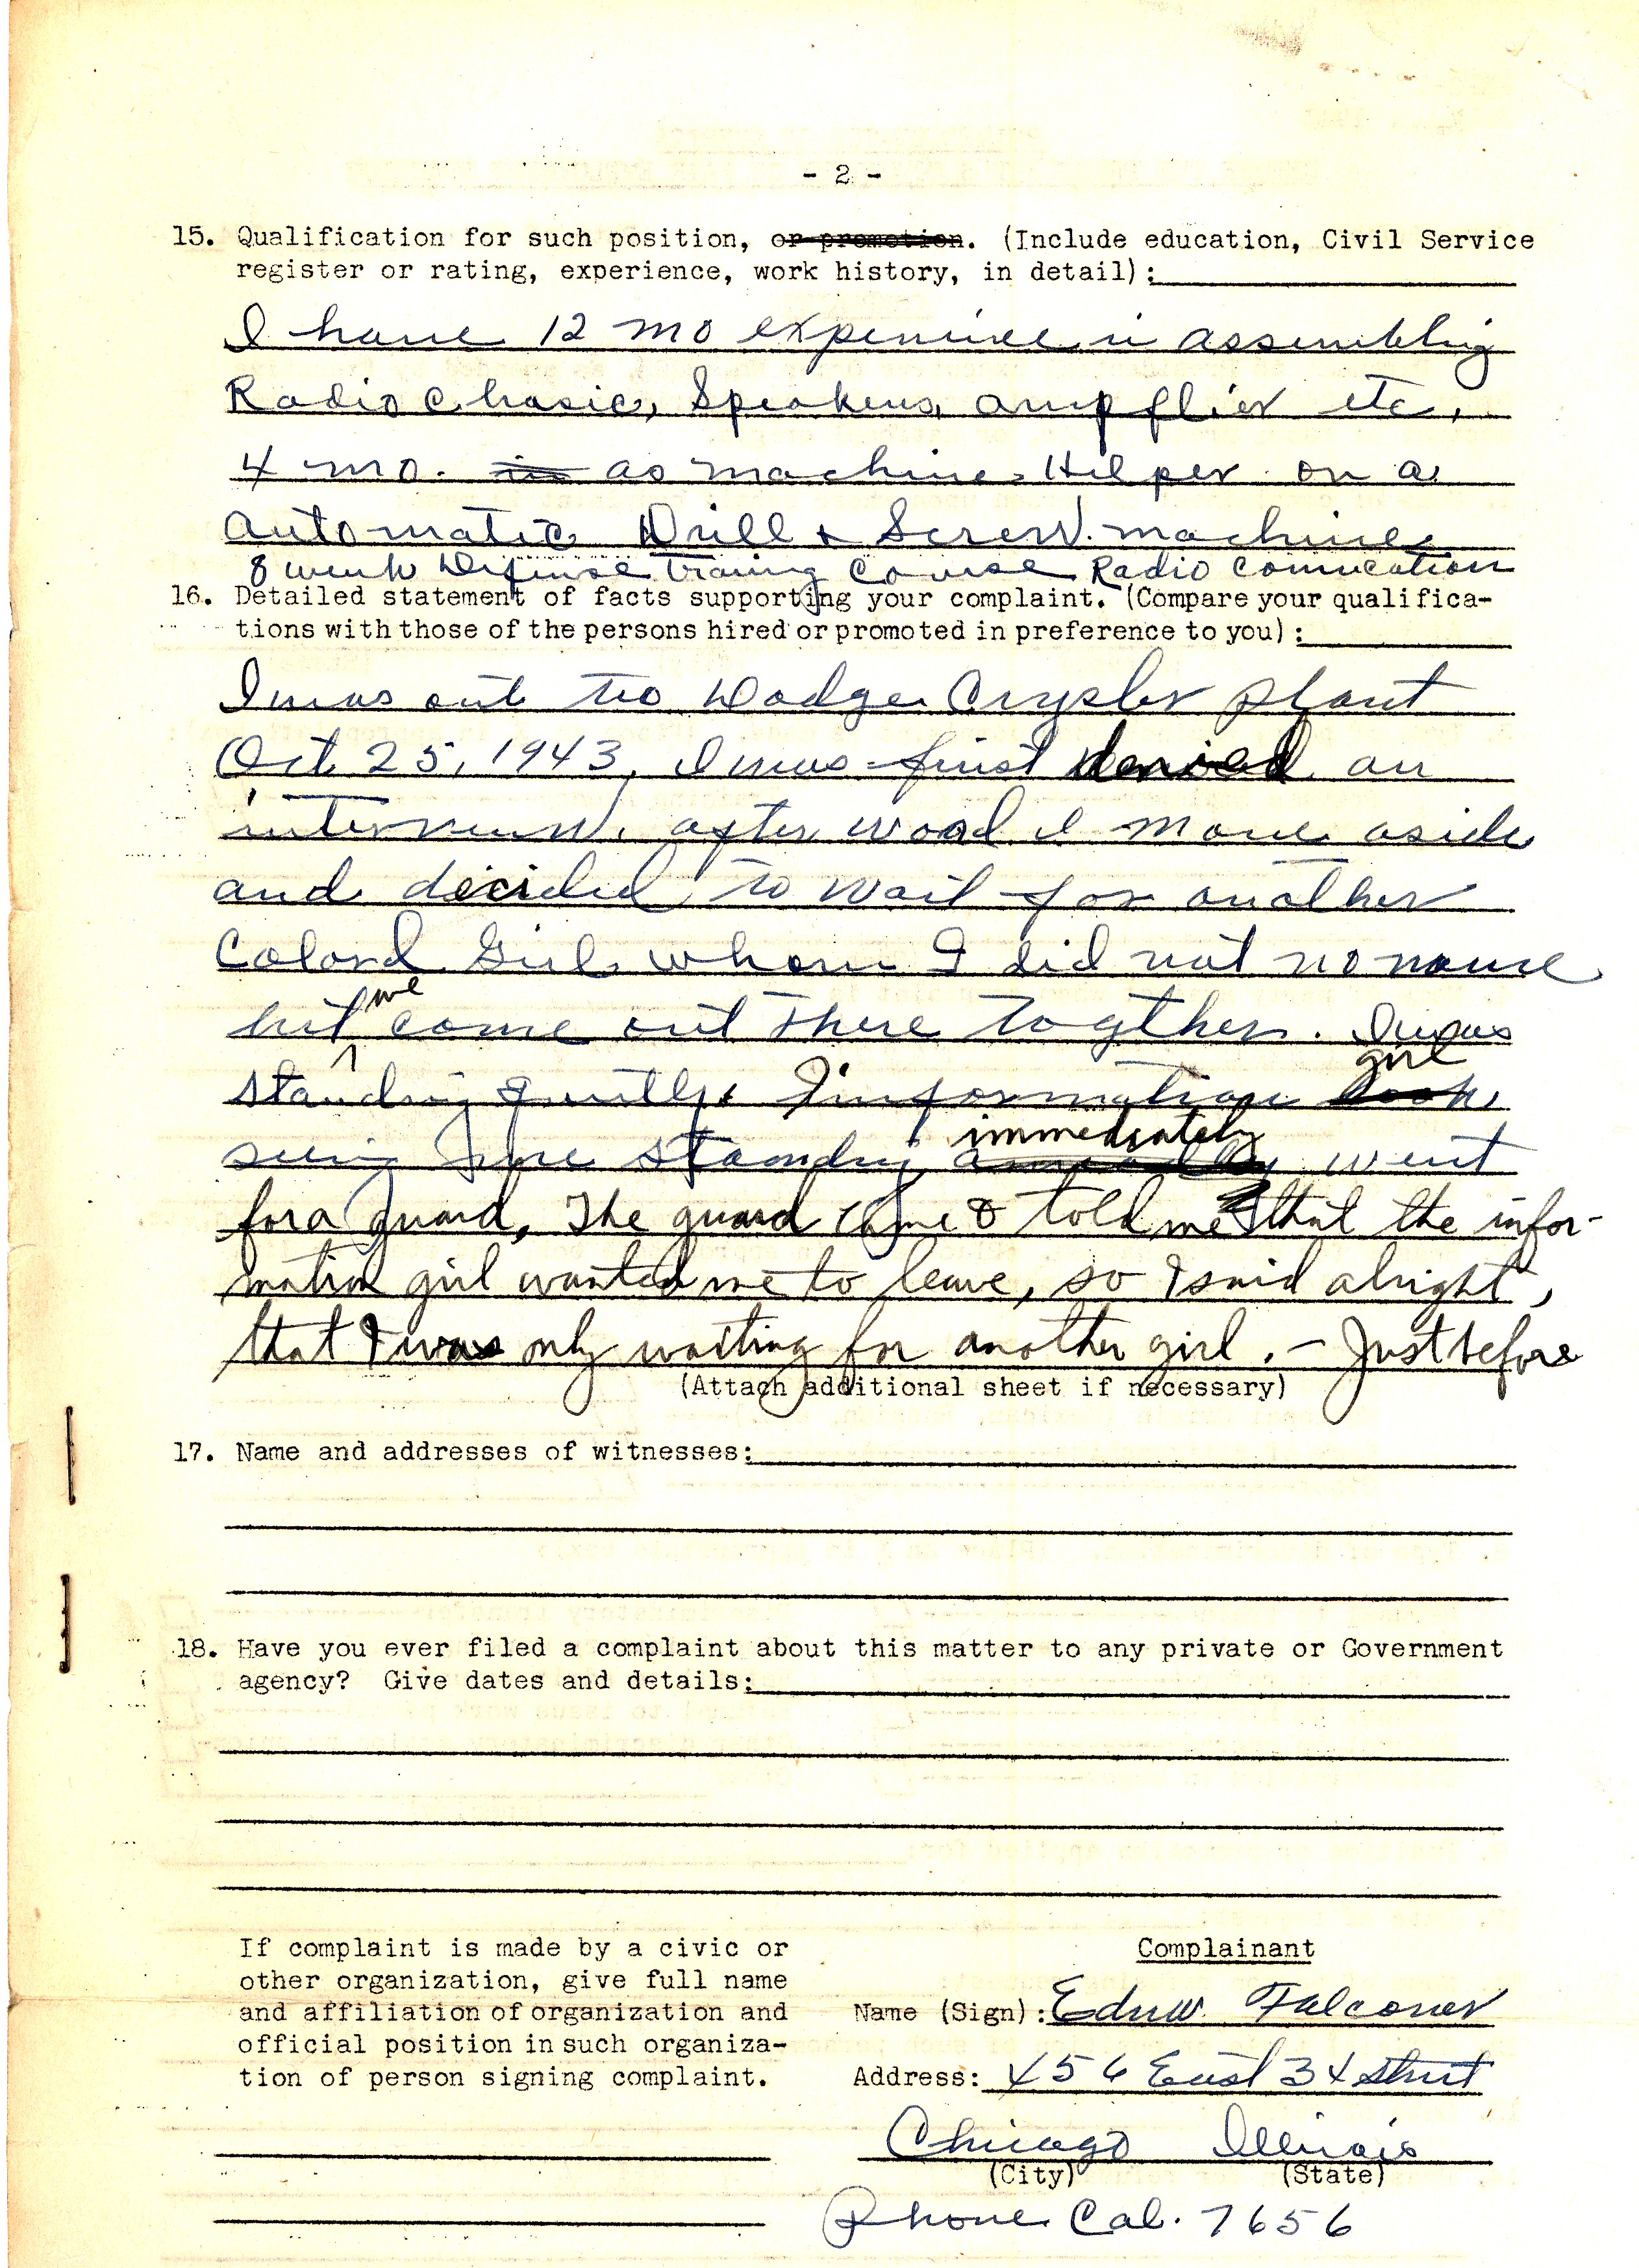 - 2 -
15. Qualification for such position, or promotion. (Include education, Civil Service
register or rating, experience, work history, in detail):
I have 12 mo experience in assembling
Radio Chasic, Speakers, ampflier etc,
4 mo. in as machine Helper on a
automatic Drill & Screw machine
8 week Defense Traing Course Radio Comucation
16. Detailed statement of facts supporting your complaint. (Compare your qualifica-
tions with those of the persons hired or promoted in preference to you):
I was out to Dodge Crysler plant
Oct 25, 1943, I was first denied an
interview, after woad I move aside
and decided to wait for another
Colord Girl whom I did not no name
but we come out there togther. I was
standing quitly. Information girl
seeing me standing immediately went
for a guard, The guard came & told me that the infor-
mation girl wanted me to leave, so I said alright,
that I was only waiting for another girl. - Just before
(Attach additional sheet if necessary)
17. Name and addresses of witnesses:
18. Have you ever filed a complaint about this matter to any private or Government
agency? Give dates and details:
If complaint is made by a civic or
other organization, give full name
and affiliation of organization and
official position in such organiza-
tion of person signing complaint.
Complainant
Name (Sign): Edna W. Falconer
Address: 456 East 34 Street
Chicago Illinois
(City) (State)
Phone Cal. 7656